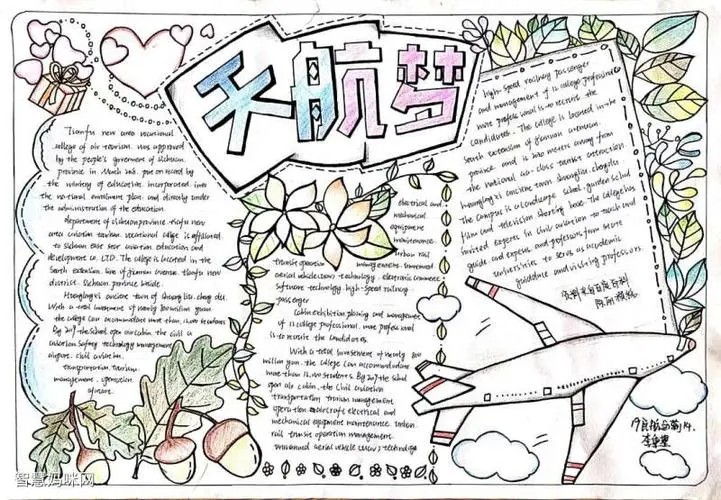 天航梦
Tianfu new area vocational
college of air tourism. was approved
by the people's government of Sichuan
province in March
the ministry of education. incorporated into
the national enrollment plan. and directly under
the administration of the education
department of sichuan province. tianfu new
area aviation tourism vocational college is affiliated
to sichuan east star aviation education and
development co. LTD. The college is located in the
South extension line of jiannan avenue. tianfu new
district. Sichuan province beside
Huanglongxi ancient town of
With a total investment of nearly 800 million yuan.
the college can accommodate more than 12,000 students
By 2017 the school open air cabin. the civil
aviation safety technology management
airport. civil aviation.
transportation. tourism
management. operation
electrical and
mechanical
equipment
maintenance
urban rail
transit operation management. unmanned
aerial vehicle technology. electronic commerce
software technology. high-speed railway
passenger
Cabin exhibition planning and management
of 12 college professional. more professional
is to recruit the candidates.
With a total investment of nearly 800
million yuan. the college can accommodate
more than 12,000 students. By 2017 the school
open air cabin. the civil aviation
transportation tourism management
operation aircraft electrical and
mechanical equipment maintenance urban
rail transit operation management.
unmanned aerial vehicle technology
high-speed railway passenger
and management of 12 college professional
more professional is to recruit the
candidates. The college is located in the
South extension of jiannan avenue
province and is 200 meters away from
the national 4A-class tourist attraction
huanglongxi ancient town
The campus is a landscape school. garden school
film and television shooting base. The college has
invited experts in civil aviation
guide and experts and professors from
universities to serve as academic
guidance and visiting professors.
资料来自百度百科
智慧妈咪网